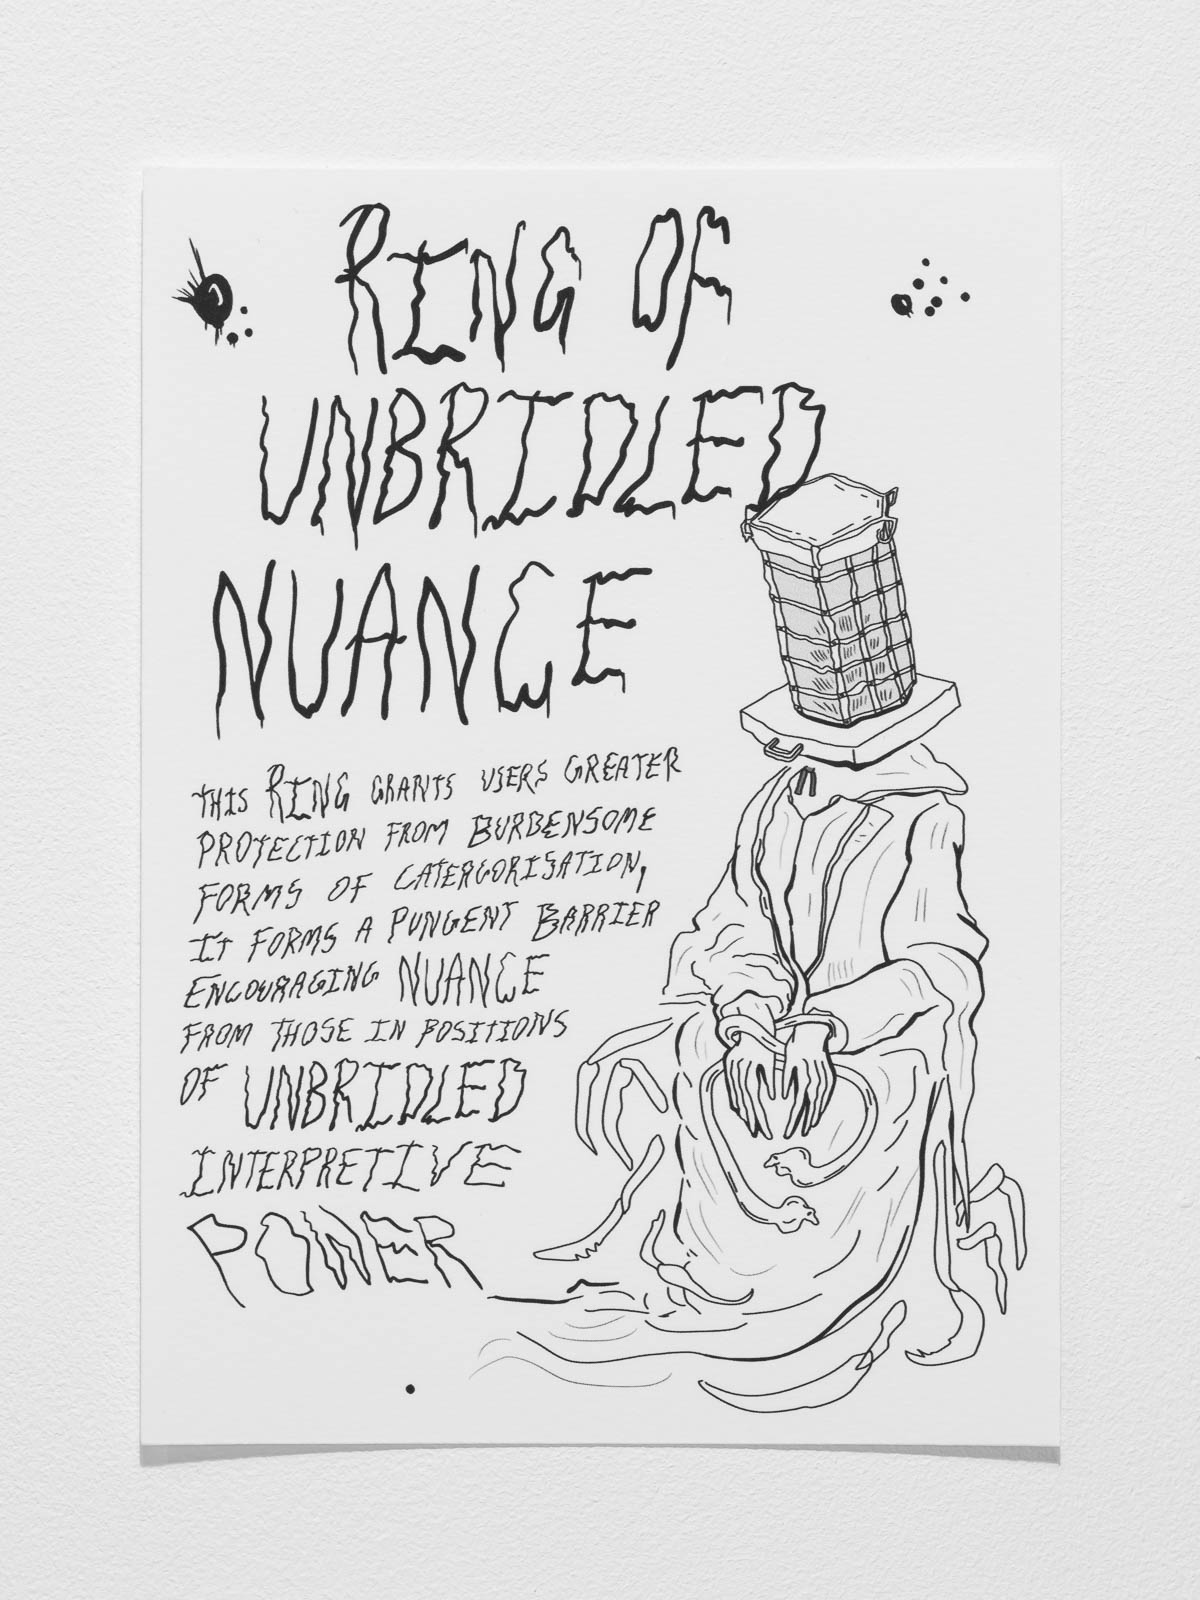 RING OF
UNBRIDLED
NUANCE
THIS RING GRANTS USERS GREATER
PROTECTION FROM BURDENSOME
FORMS OF CATERGORISATION,
IT FORMS A PUNGENT BARRIER
ENCOURAGING NUANCE
FROM THOSE IN POSITIONS
OF UNBRIDLED
INTERPRETIVE
POWER